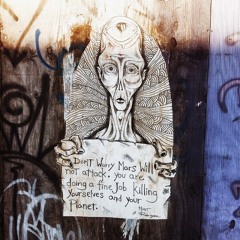 Don't Worry Mars Will
not attack. you are
doing a fine Job Killing
yourselves and your
Planet.